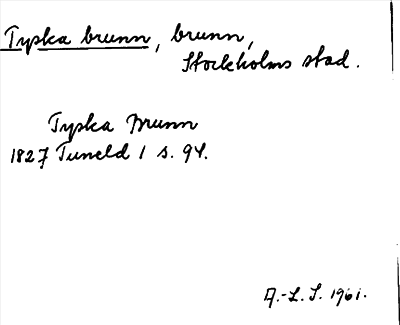 Tyska brunn, brunn,
Stockholms stad.
Tyska Brunn
1827 Tuneld 1 s. 94.
A.-L. S. 1961.